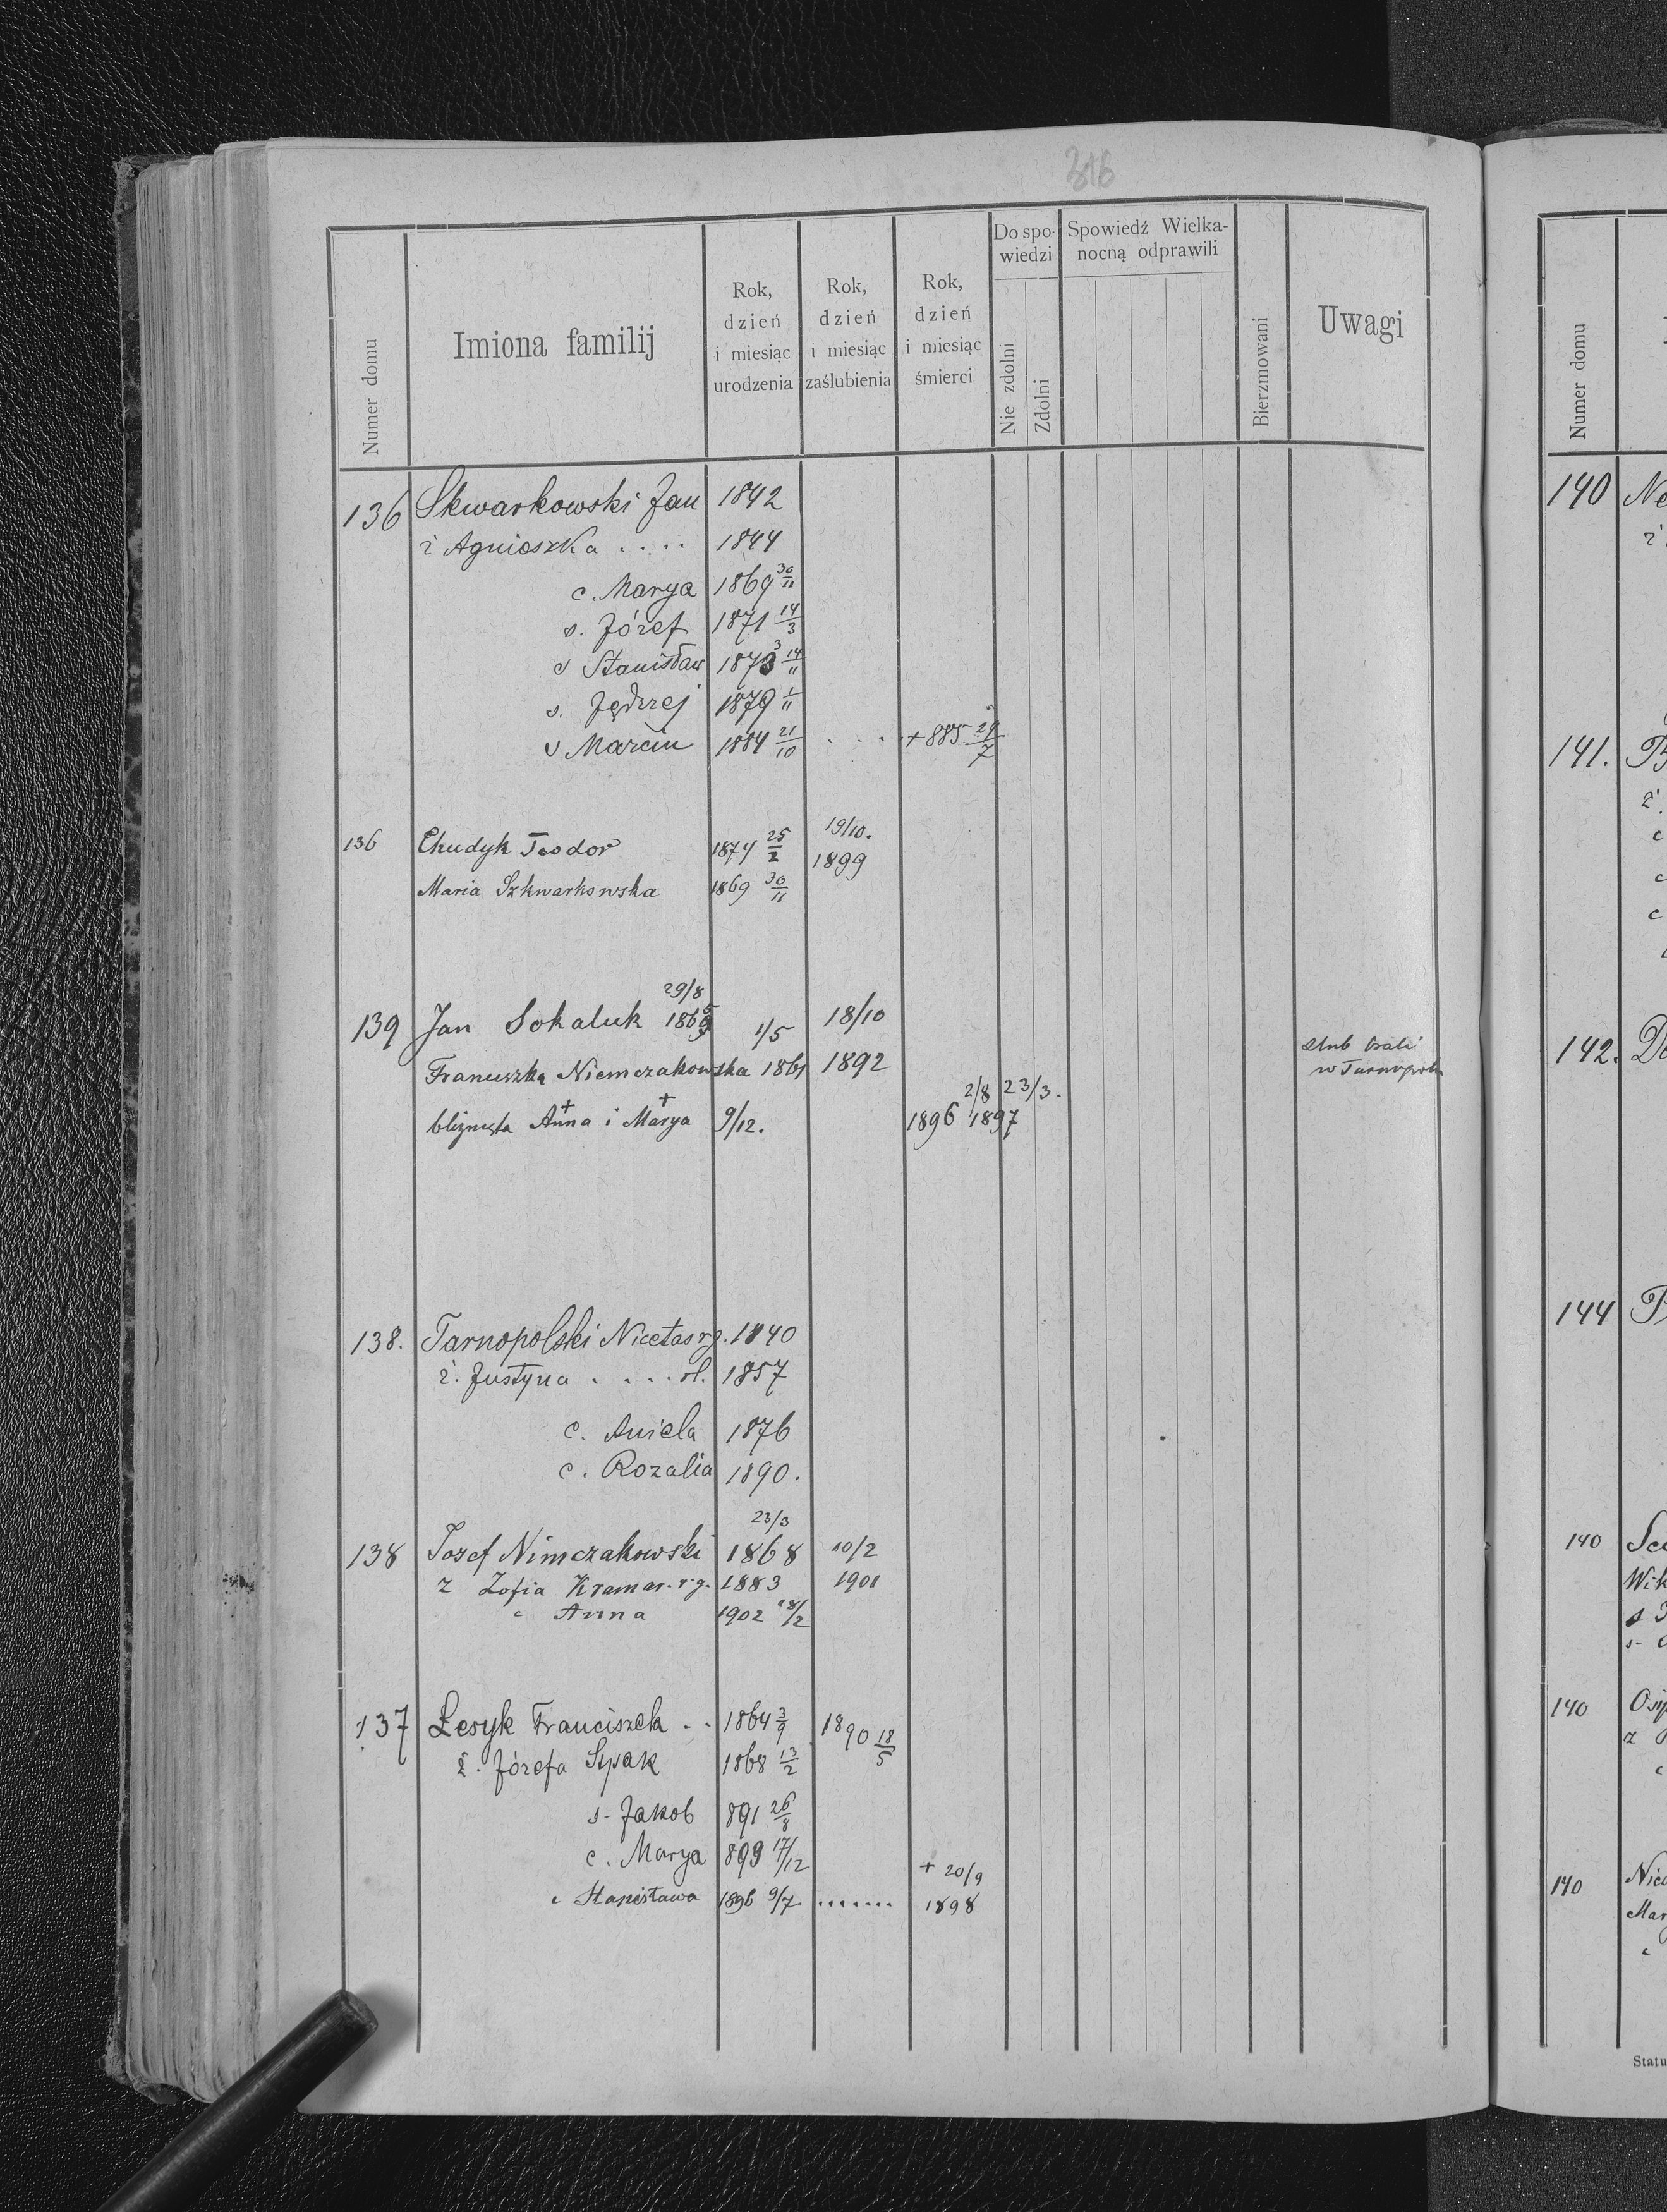 316
Numer domu
Imiona familij
Rok,
dzień
i miesiąc
urodzenia
Rok,
dzień
i miesiąc
zaślubienia
Rok,
dzień
i miesiąc
śmierci
Do spo-
wiedzi
Nie zdolni
Zdolni
Spowiedź Wielka-
nocną odprawili
Bierzmowani
Uwagi
136 Skwarkowski Jan 1842
ż Agnieszka . . . . . 1844
c. Marya 1869 30/11
s. Józef 1871 14/3
s Stanisław 1873 14/11
s. Jędrzej 1879 1/11
s Marcin 1884 21/10 . . . . +885 29/7
19/10.
136 Chudyk Teodor 1874 25/2 1899
Maria Szkwarkowska 1869 30/11
29/8
139 Jan Sokaluk 1865 1/5 18/10 ślub brali
Franuszka Niemczakowska 1861 1892 w Tarnopolu
2/8 23/3.
bliznięta Anna + i Marya + 9/12. 1896 1897
138. Tarnopolski Nicetas rg. 1840
ż. Justyna . . . . rl. 1857
c. Aniela 1876
c. Rozalia 1890.
23/3
138 Josef Nimczakowski 1868 10/2
z Zofia Kramar. r.g. 1883 1901
c Anna 1902 18/2
137 Łesyk Franciszek . . 1864 3/9 1890 18/5
ż. Józefa Szpak 1868 13/2
s- Jakob 891 26/8
c. Marya 893 17/12
+ 20/9
c Stanisława 1896 9/7 ....... 1898
Numer domu
140 Ne
ż
141.
ż.
c
c
c
142. Do
144
140
Wik
s
s-
140
z
c
140 Nic
Mar
c
Statu